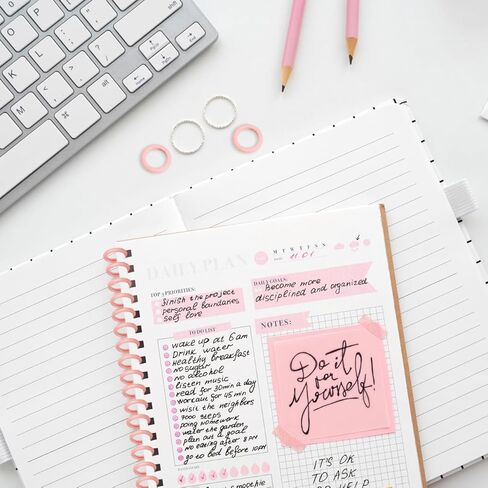 DAILY PLAN
M T W T F S S
11.01
TOP 3 PRIORITIES:
finish the project
personal boundaries
self love
DAILY GOALS:
Become more
disciplined and organized
TO DO LIST
wake up at 6 am
Drink water
Healthy breakfast
no sugar
no alcohol
listen music
read for 30min a day
workout for 45 min
visit the neighbors
7000 steps
doing homework
water the garden
plan out a goal
no eating after 8 pm
go to bed before 10pm
smoothie
NOTES:
Do it
for
Yourself!
IT'S OK
TO ASK
FOR HELP
K
L
M
<
>
?
alt
option
command
home
end
pg up
pg dn